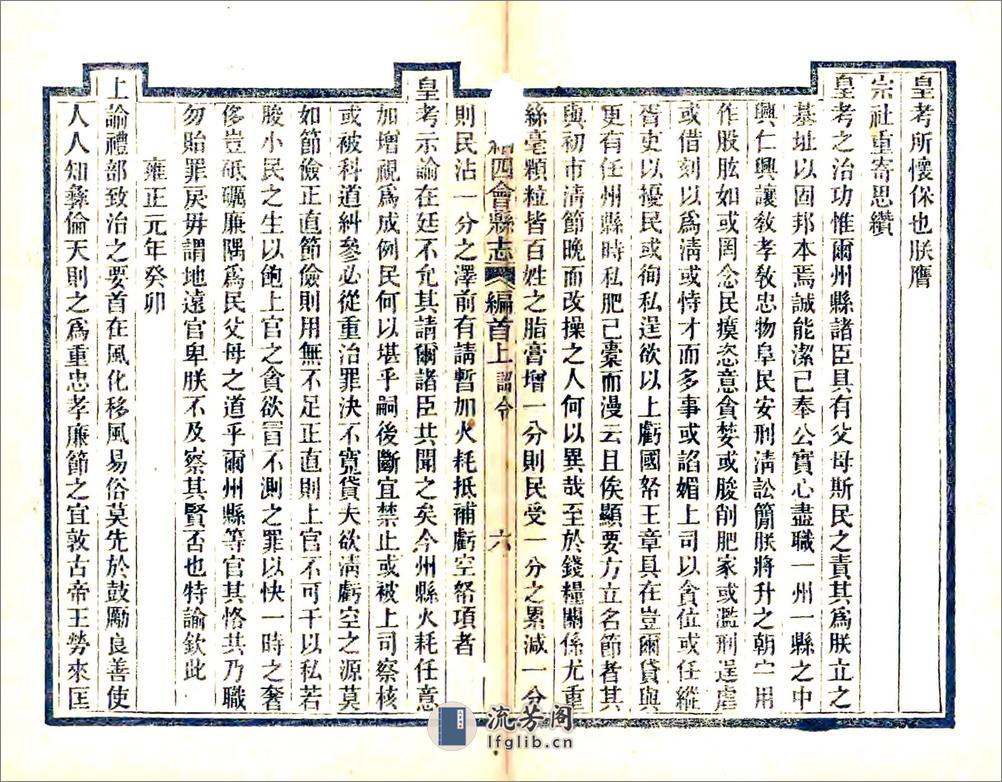 皇考所懷保也朕膺
宗社重寄思纘
皇考之治功惟爾州縣諸臣具有父母斯民之責其爲朕立之
基址以固邦本焉誠能潔己奉公實心盡職一州一縣之中
興仁興讓敎孝敎忠物阜民安刑淸訟簡朕將升之朝宁用
作股肱如或罔念民瘼恣意貪婪或朘削肥家或濫刑逞虐
或借刻以爲淸或恃才而多事或諂媚上司以貪位或任縱
胥吏以擾民或徇私逞欲以上虧國帑王章具在豈爾貸與
更有任州縣時私肥己橐而漫云且俟顯要方立名節者其
與初市淸節晚而改操之人何以異哉至於錢糧關係尤重
絲毫顆粒皆百姓之脂膏增一分則民受一分之累減一分
四會縣志
編首上
詔令
六
則民沾一分之澤前有請暫加火耗抵補虧空帑項者
皇考示諭在廷不允其請爾諸臣共聞之矣今州縣火耗任意
加增視爲成例民何以堪乎嗣後斷宜禁止或被上司察核
或被科道糾參必從重治罪決不寬貸夫欲淸虧空之源莫
如節儉正直節儉則用無不足正直則上官不可干以私若
朘小民之生以飽上官之貪欲冒不測之罪以快一時之奢
侈豈砥礪廉隅爲民父母之道乎爾州縣等官其恪共乃職
勿貽罪戾毋謂地遠官卑朕不及察其賢否也特諭欽此
雍正元年癸卯
上諭禮部致治之要首在風化移風易俗莫先於鼓勵良善使
人人知彝倫天則之爲重忠孝廉節之宜敦古帝王勞來匡
流芳阁
lfglib.cn